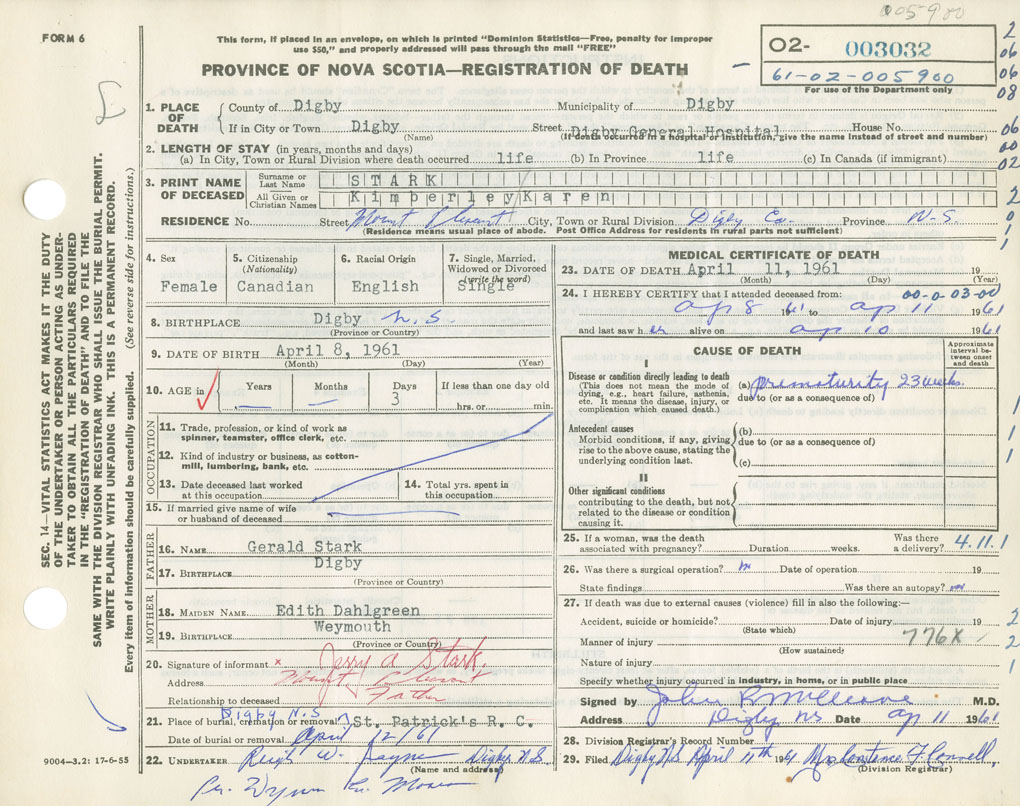 005-900
FORM 6
This form, if placed in an envelope, on which is printed "Dominion Statistics—Free, penalty for improper
use $50," and properly addressed will pass through the mail "FREE"
PROVINCE OF NOVA SCOTIA—REGISTRATION OF DEATH
O2- 003032
61-02-005900
For use of the Department only
2
06
06
08
1. PLACE OF DEATH
County of Digby Municipality of Digby
If in City or Town Digby Street Digby General Hospital House No.
(Name) (If death occurred in a hospital or institution, give the name instead of street and number)
06
00
02
2. LENGTH OF STAY (in years, months and days)
(a) In City, Town or Rural Division where death occurred life (b) In Province life (c) In Canada (if immigrant)
3. PRINT NAME OF DECEASED
Surname or Last Name STARK
All Given or Christian Names Kimberley/Karen
2
0
1
1
RESIDENCE No. Street Mount Pleasant City, Town or Rural Division Digby Co. Province N.S.
(Residence means usual place of abode. Post Office Address for residents in rural parts not sufficient)
4. Sex
Female
5. Citizenship
(Nationality)
Canadian
6. Racial Origin
English
7. Single, Married,
Widowed or Divorced
(write the word)
Single
8. BIRTHPLACE Digby N.S.
(Province or Country)
9. DATE OF BIRTH April 8, 1961
(Month) (Day) (Year)
10. AGE in
Years
—
Months
—
Days
3
If less than one day old
hrs. or min.
OCCUPATION
11. Trade, profession, or kind of work as
spinner, teamster, office clerk, etc.
12. Kind of industry or business, as cotton-
mill, lumbering, bank, etc.
13. Date deceased last worked
at this occupation
14. Total yrs. spent in
this occupation
15. If married give name of wife
or husband of deceased
FATHER
16. NAME Gerald Stark
17. BIRTHPLACE Digby
(Province or Country)
MOTHER
18. MAIDEN NAME Edith Dahlgreen
19. BIRTHPLACE Weymouth
(Province or Country)
20. Signature of informant x Jerry A Stark.
Address Mount Pleasant
Relationship to deceased Father
21. Place of burial, cremation or removal Digby N.S St. Patrick's R. C.
Date of burial or removal April 12/61
22. UNDERTAKER W. Digby N.S.
(Name and address)
MEDICAL CERTIFICATE OF DEATH
23. DATE OF DEATH April 11, 1961 19
(Month) (Day) (Year)
24. I HEREBY CERTIFY that I attended deceased from: 00-0-03-00
ap 8 1961 to ap 11 1961
and last saw her alive on ap 10 1961
CAUSE OF DEATH
Approximate
interval be-
tween onset
and death
I
Disease or condition directly leading to death
(This does not mean the mode of
dying, e.g., heart failure, asthenia,
etc. It means the disease, injury, or
complication which caused death.)
(a) prematurity 23 weeks.
due to (or as a consequence of)
Antecedent causes
Morbid conditions, if any, giving
rise to the above cause, stating the
underlying condition last.
(b)
due to (or as a consequence of)
(c)
II
Other significant conditions
contributing to the death, but not
related to the disease or condition
causing it.
1
1
1
25. If a woman, was the death
associated with pregnancy? Duration weeks. Was there
a delivery? 4.11.1
26. Was there a surgical operation? no Date of operation 19
State findings Was there an autopsy? no
27. If death was due to external causes (violence) fill in also the following:—
Accident, suicide or homicide? Date of injury 19
(State which)
Manner of injury 776X
(How sustained)
Nature of injury
2
2
1
Specify whether injury occurred in industry, in home, or in public place
Signed by John R McCleave M.D.
Address Digby NS Date ap 11 1961
28. Division Registrar's Record Number
29. Filed Digby N.S April 11th 1961 Mrs Constance F. Connell,
(Division Registrar)
SEC. 14—VITAL STATISTICS ACT MAKES IT THE DUTY
OF THE UNDERTAKER OR PERSON ACTING AS UNDER-
TAKER TO OBTAIN ALL THE PARTICULARS REQUIRED
IN THE "REGISTRATION OF DEATH" AND TO FILE THE
SAME WITH THE DIVISION REGISTRAR WHO SHALL ISSUE THE BURIAL PERMIT.
WRITE PLAINLY WITH UNFADING INK. THIS IS A PERMANENT RECORD.
Every item of information should be carefully supplied. (See reverse side for instructions.)
9004—3.2: 17-6-55